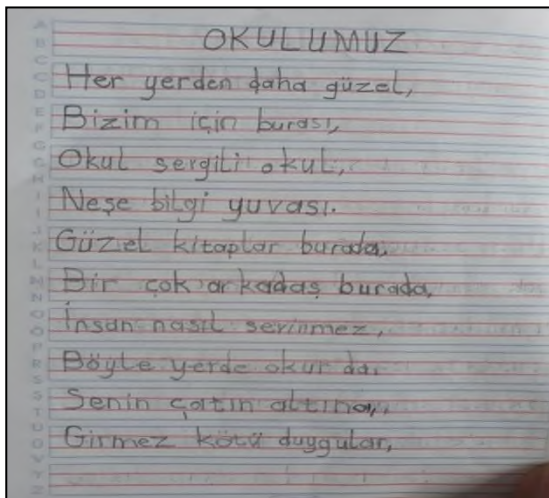 OKULUMUZ
Her yerden daha güzel,
Bizim için burası,
Okul sergili okul,
Neşe bilgi yuvası.
Güzel kitaplar burada,
Bir çok arkadaş burada,
İnsan nasıl serinmez,
Böyle yerde okur da.
Senin çatın altına,
Girmez kötü duygular,